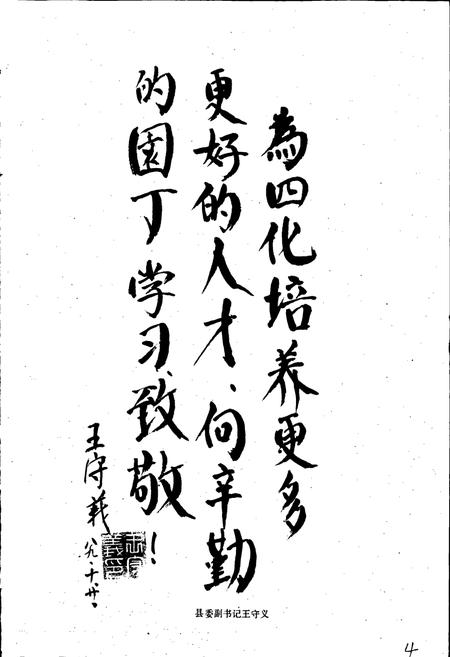 為四化培养更多
更好的人才、向辛勤
的園丁学习、致敬！
王守義
八九.十.廿.
县委副书记王守义
4